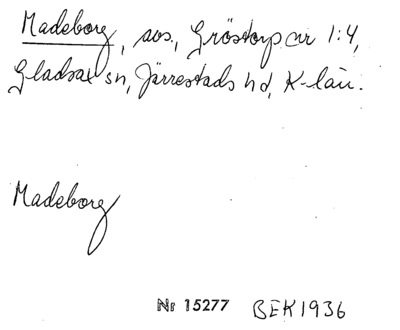 Madeborg, avs., Gröstorp nr 1:4,
Gladsax sn, Järrestads hd, K-län.
Madeborg
Nr 15277 BEK 1936